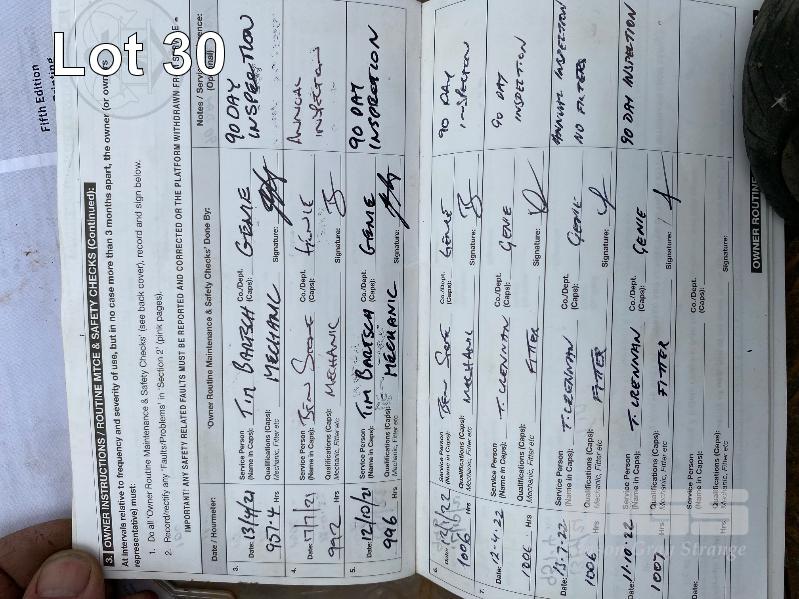 Lot 30
Fifth Edition
3. OWNER INSTRUCTIONS / ROUTINE MTCE & SAFETY CHECKS (Continued):
At intervals relative to frequency and severity of use, but in no case more than 3 months apart, the owner (or owners
representative) must:
1. Do all 'Owner Routine Maintenance & Safety Checks' (see back cover), record and sign below.
2. Record/rectify any 'Faults/Problems' in 'Section 2' (pink pages).
IMPORTANT! ANY SAFETY RELATED FAULTS MUST BE REPORTED AND CORRECTED OR THE PLATFORM WITHDRAWN FROM
Date / Hourmeter:
'Owner Routine Maintenance & Safety Checks' Done By:
Notes / Service
3.
Date: 13/4/21
957.4 Hrs
Service Person (Name in Caps): TIM BARTSCH
Co./Dept. (Caps): GENIE
Qualifications (Caps): Mechanic, Fitter etc MECHANIC
Signature:
90 DAY
INSPECTION
4.
992 Hrs
Service Person (Name in Caps): BEN
Co./Dept. (Caps): GENIE
Qualifications (Caps): Mechanic, Fitter etc MECHANIC
Signature:
ANNUAL
INSPECTION
5.
Date: 12/10/21
996 Hrs
Service Person (Name in Caps): TIM BARTSCH
Co./Dept. (Caps): GENIE
Qualifications (Caps): Mechanic, Fitter etc MECHANIC
Signature:
90 DAY
INSPECTION
6.
1006 Hrs
Service Person (Name in Caps): BEN
Co./Dept. (Caps): GENIE
Qualifications (Caps): Mechanic, Fitter etc MECHANIC
Signature:
90 DAY
INSPECTION
7.
Date: 12-4-22
1006 Hrs
Service Person (Name in Caps): T. CRENNAN
Co./Dept. (Caps): GENIE
Qualifications (Caps): Mechanic, Fitter etc FITTER
Signature:
90 DAY
INSPECTION
Date: 13-7-22
1006 Hrs
Service Person (Name in Caps): T. CRENNAN
Co./Dept. (Caps): GENIE
Qualifications (Caps): Mechanic, Fitter etc FITTER
Signature:
ANNUAL INSPECTION
NO FILTERS
Date: 11-10-22
1007 Hrs
Service Person (Name in Caps): T. CRENNAN
Co./Dept. (Caps): GENIE
Qualifications (Caps): Mechanic, Fitter etc FITTER
Signature:
90 DAY INSPECTION
Date:
Hrs
Service Person (Name in Caps):
Co./Dept. (Caps):
Qualifications (Caps): Mechanic, Fitter etc
Signature:
OWNER ROUTINE
Strange